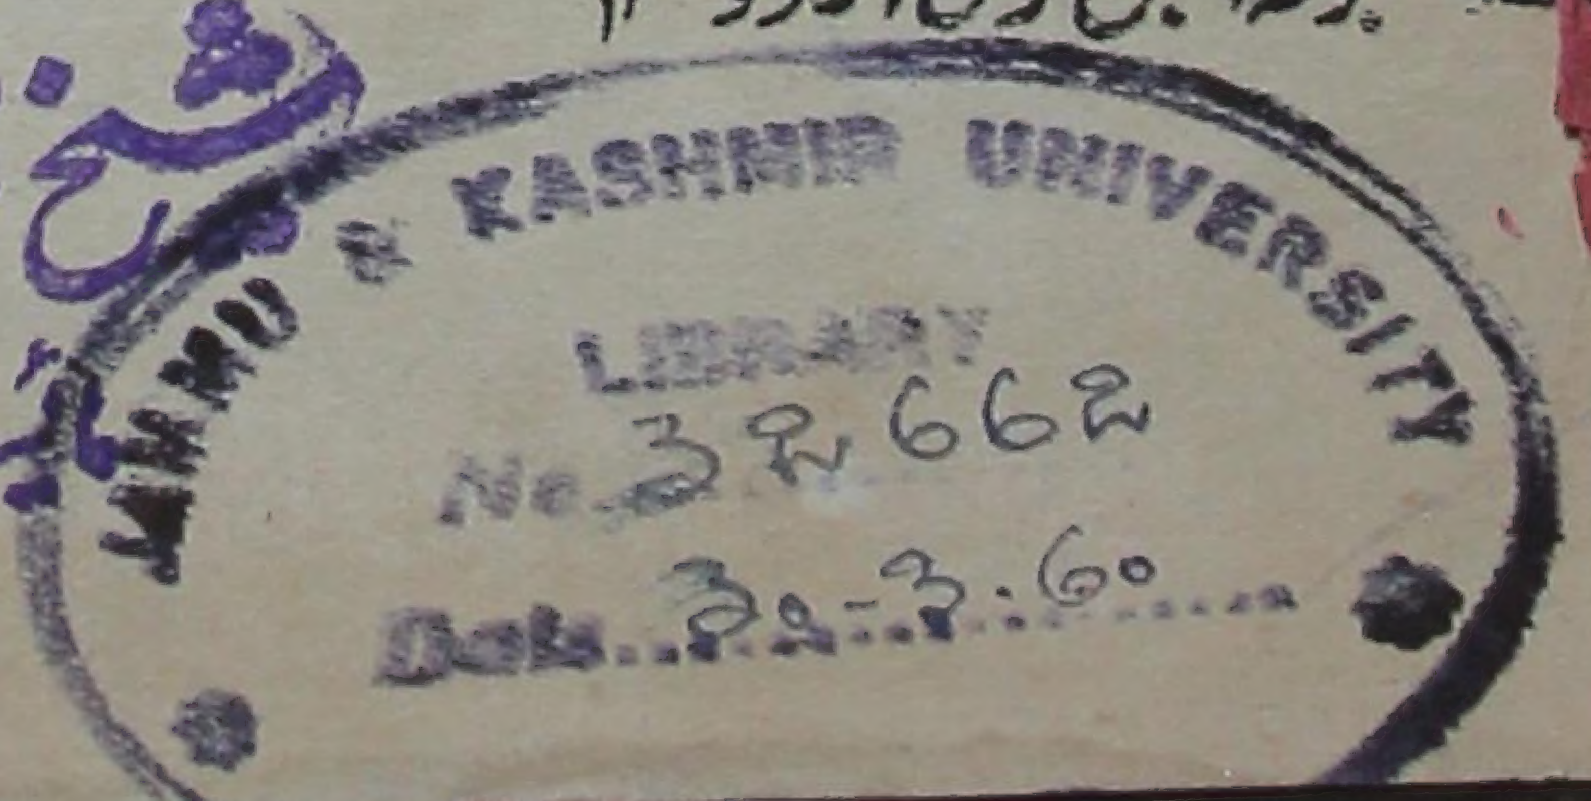 JAMMU & KASHMIR UNIVERSITY
LIBRARY
No. 32662
Date... 30-3.60